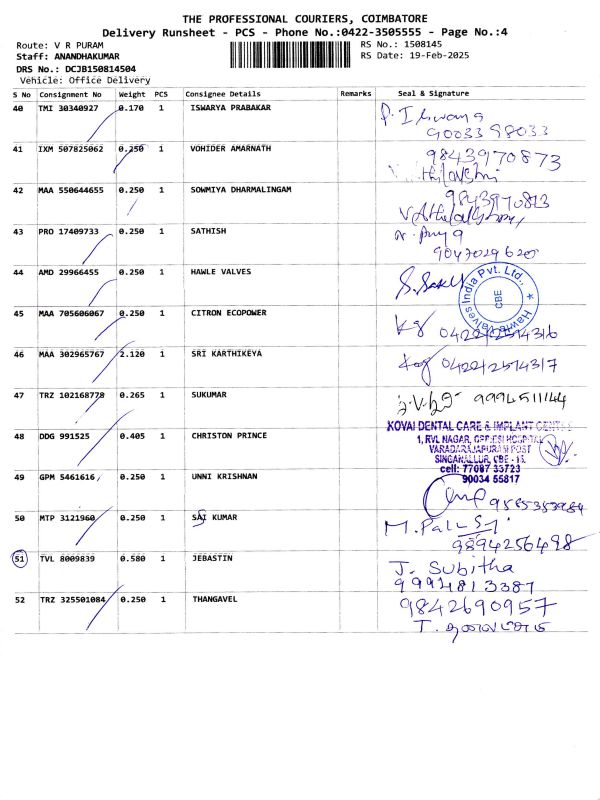 THE PROFESSIONAL COURIERS, COIMBATORE
Delivery Runsheet - PCS - Phone No.:0422-3505555 - Page No.:4
Route: V R PURAM RS No.: 1508145
Staff: ANANDHAKUMAR RS Date: 19-Feb-2025
DRS No.: DCJB150814504
Vehicle: Office Delivery
S No Consignment No Weight PCS Consignee Details Remarks Seal & Signature
40 TMI 30340927 0.170 1 ISWARYA PRABAKAR P. Iswarya
9003398033
41 IXM 507825062 0.250 1 VOHIDER AMARNATH 9843970873
42 MAA 550644655 0.250 1 SOWMIYA DHARMALINGAM
43 PRO 17409733 0.250 1 SATHISH
9047029620
44 AMD 29966455 0.250 1 HAWLE VALVES
Hawle Valves India Pvt. Ltd.,
CBE
45 MAA 705606067 0.250 1 CITRON ECOPOWER 0422/2574316
46 MAA 302965767 2.120 1 SRI KARTHIKEYA 0422/2574317
47 TRZ 102168778 0.265 1 SUKUMAR 9994511144
48 DDG 991525 0.405 1 CHRISTON PRINCE KOVAI DENTAL CARE & IMPLANT CENTRE
1, RVL NAGAR, OPP.ESI HOSPITAL
VARADARAJAPURAM POST
SINGANALLUR, CBE - 15.
cell: 77087 33723
90034 55817
49 GPM 5461616 0.250 1 UNNI KRISHNAN
50 MTP 3121960 0.250 1 SAI KUMAR
9894256498
51 TVL 8009839 0.580 1 JEBASTIN J. Subitha
9994813387
52 TRZ 325501084 0.250 1 THANGAVEL 9842690957